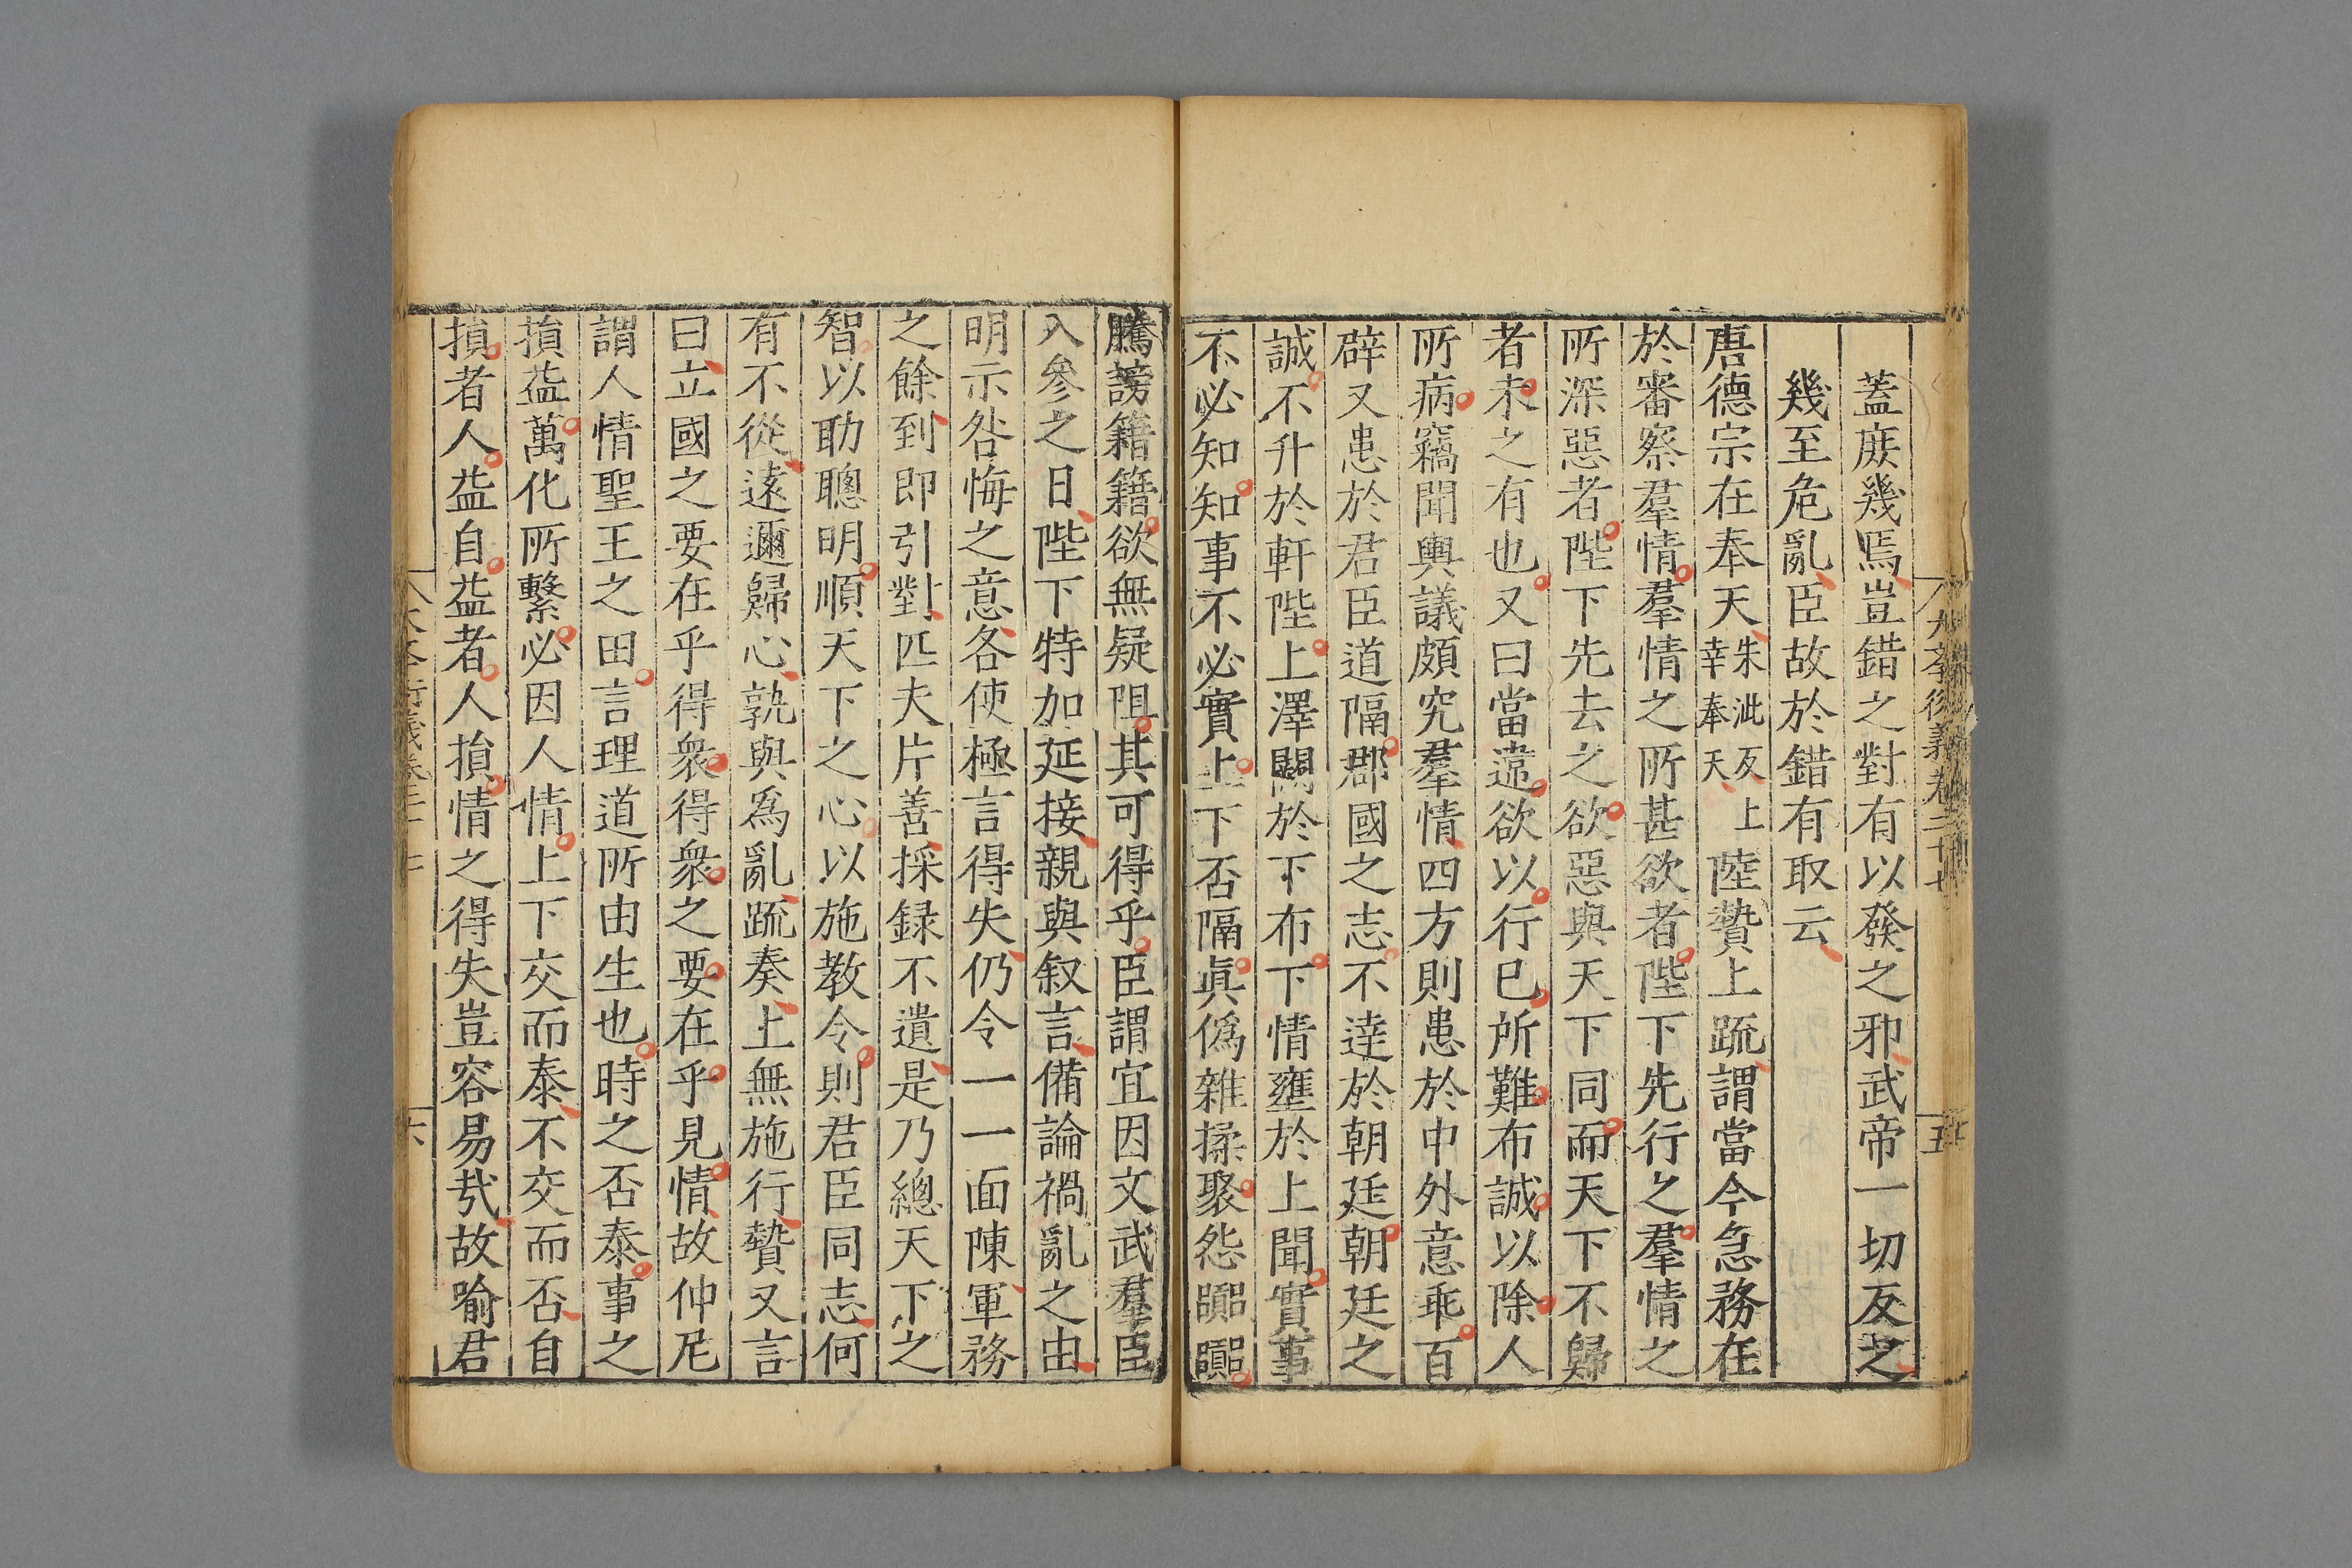 大學衍義卷二十七
五
蓋庻幾焉豈錯之對有以發之邪武帝一切反之
幾至危亂臣故於錯有取云
唐德宗在奉天朱泚反上幸奉天陸贄上疏謂當今急務在
於審察羣情羣情之所甚欲者陛下先行之羣情之
所深惡者陛下先去之欲惡與天下同而天下不歸
者未之有也又曰當違欲以行已所難布誠以除人
所病竊聞輿議頗究羣情四方則患於中外意乖百
辟又患於君臣道隔郡國之志不逹於朝廷朝廷之
誠不升於軒陛上澤闕於下布下情壅於上聞實事
不必知知事不必實上下否隔眞僞雜揉聚怨嚻嚻
騰謗籍籍欲無疑阻其可得乎臣謂宜因文武羣臣
入參之日陛下特加延接親與叙言備論禍亂之由
明示咎悔之意各使極言得失仍令一一面陳軍務
之餘到即引對匹夫片善採録不遺是乃總天下之
智以助聰明順天下之心以施教令則君臣同志何
有不從遠邇歸心孰與爲亂疏奏上無施行贄又言
曰立國之要在乎得衆得衆之要在乎見情故仲尼
謂人情聖王之田言理道所由生也時之否泰事之
損益萬化所繫必因人情上下交而泰不交而否自
損者人益自益者人損情之得失豈容易哉故喻君
六